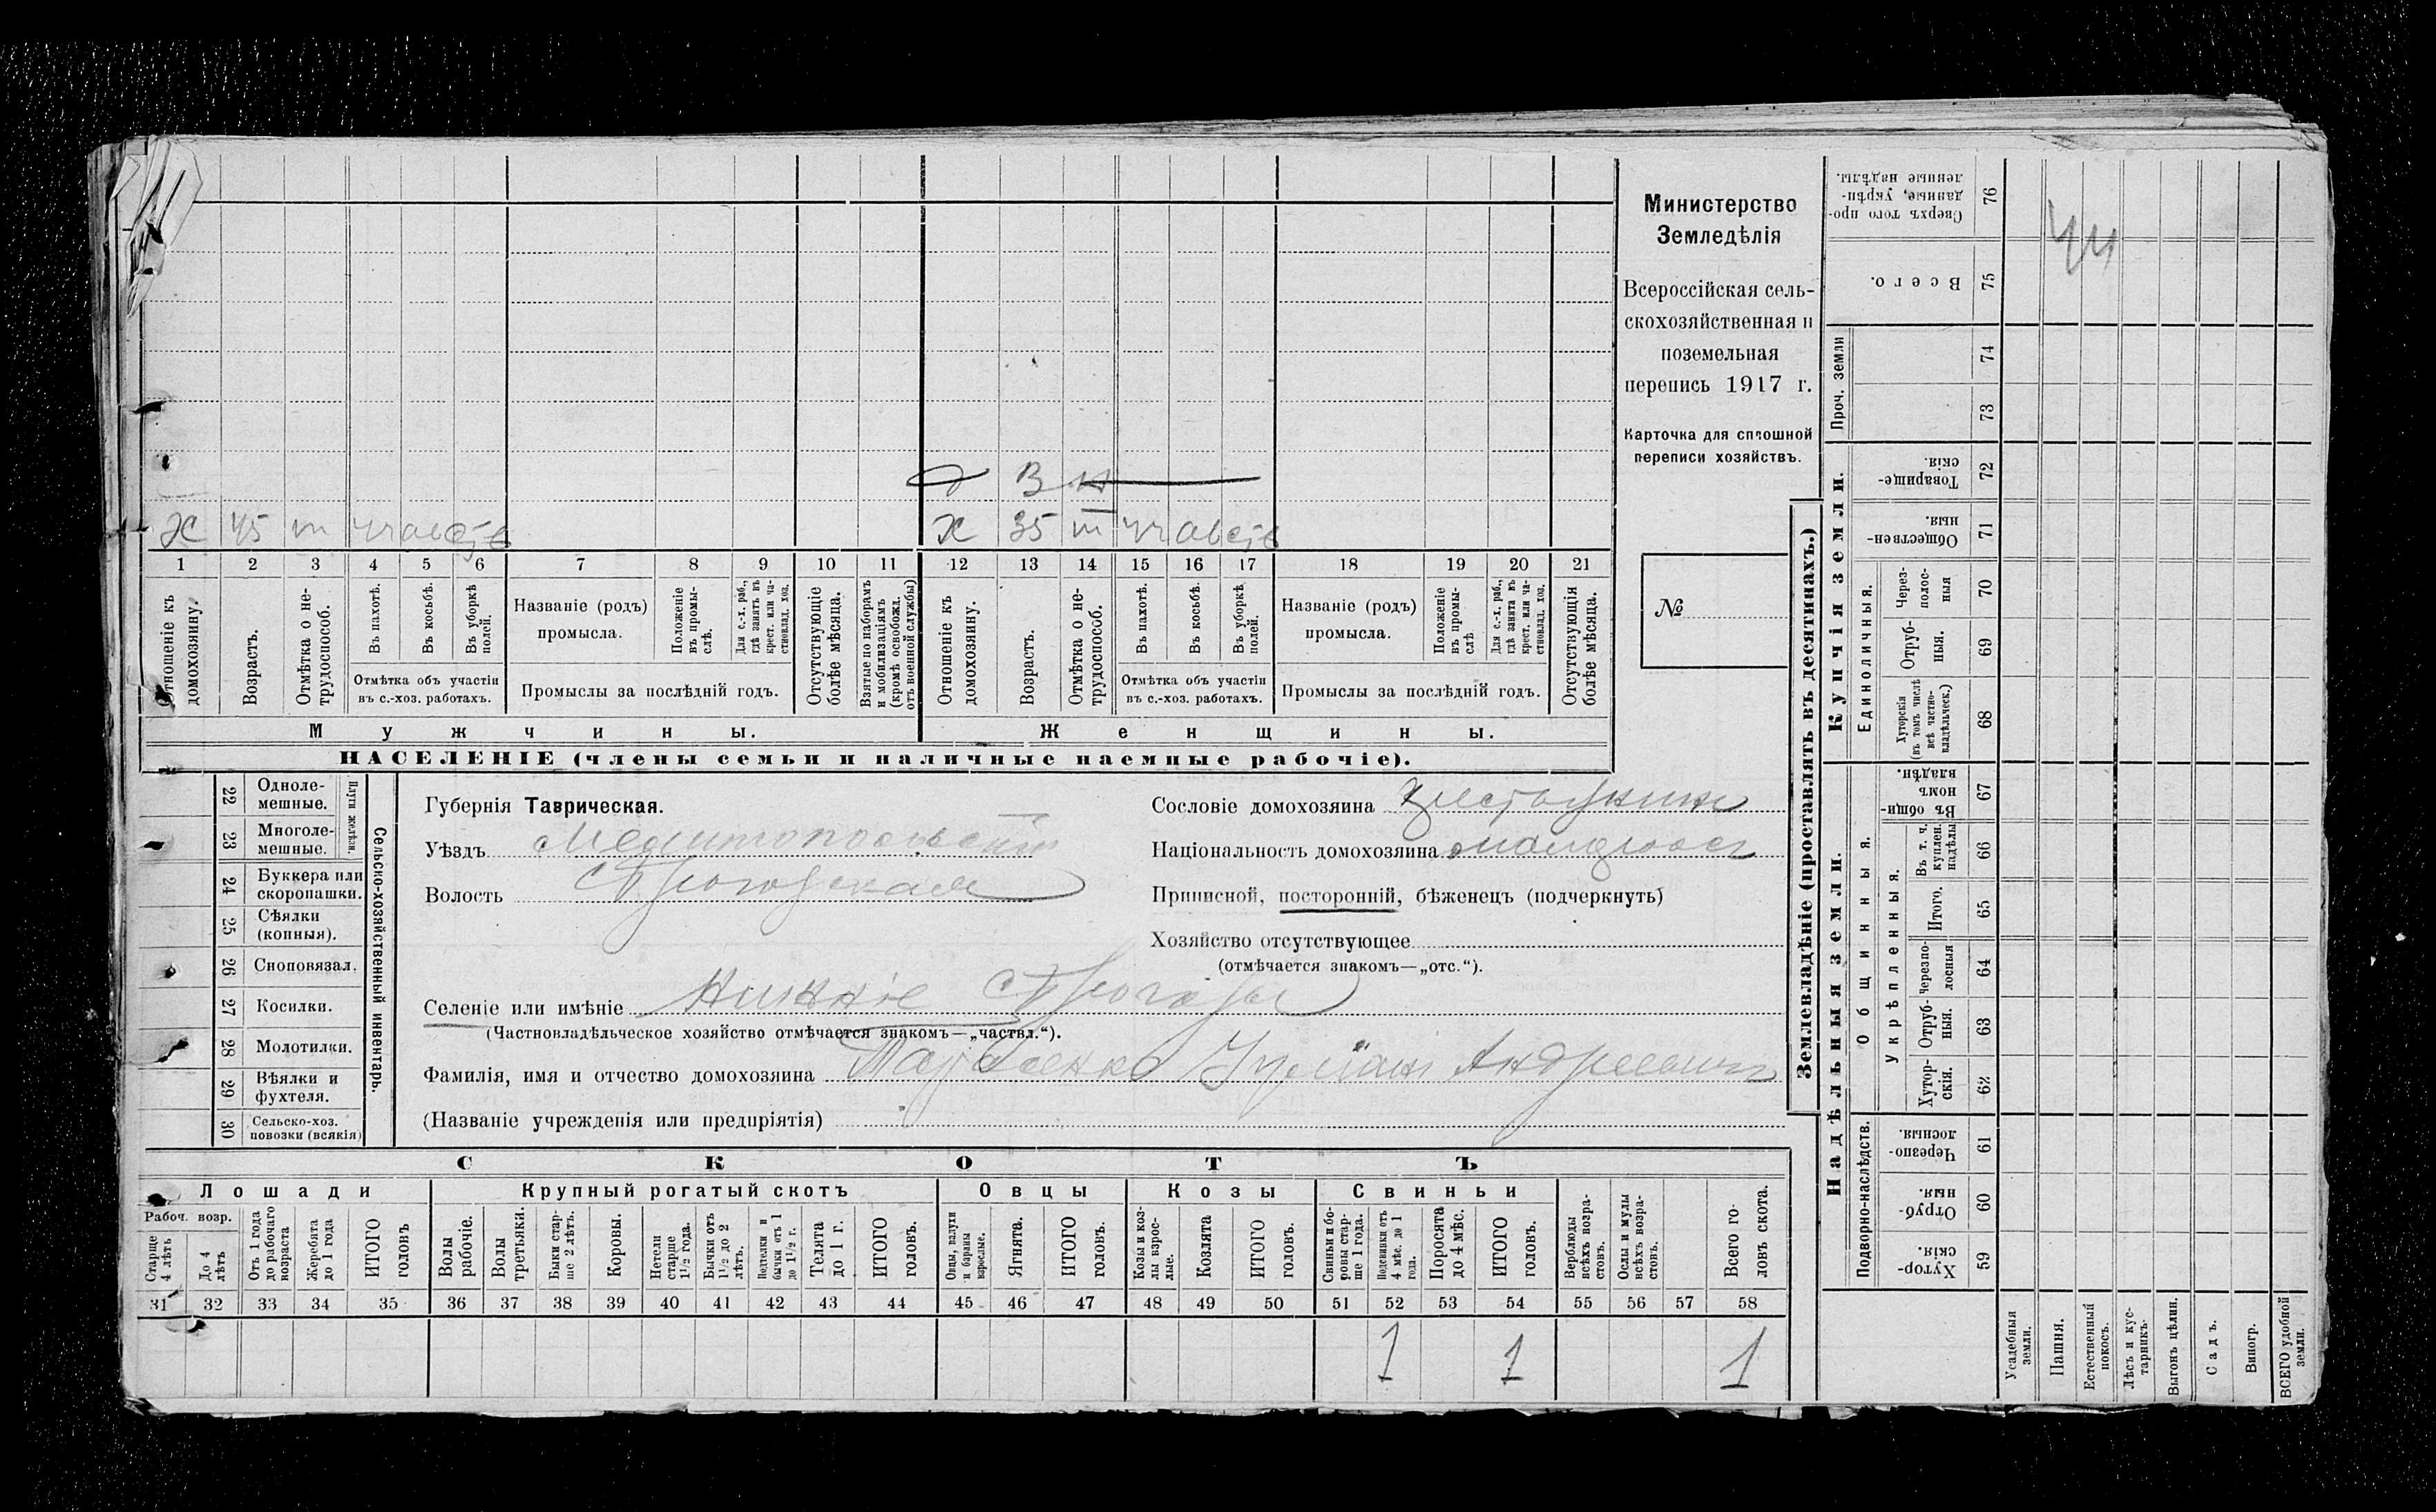 Министерство
Земледѣлія
Всероссійская сель-
скохозяйственная и
поземельная
перепись 1917 г.
Карточка для сплошной
переписи хозяйствъ.
№
д 3 н
х 45 ш
х 35 ш
1 2 3 4 5 6 7 8 9 10 11 12 13 14 15 16 17 18 19 20 21
Отношеніе къ домохозяину.
Возрастъ.
Отмѣтка о не-трудоспособ.
Въ пахотѣ.
Въ косьбѣ.
Въ уборкѣ полей.
Отмѣтка объ участіи
въ с.-хоз. работахъ.
Названіе (родъ)
промысла.
Положеніе въ промы-слѣ.
Для с.-х. раб., гдѣ занятъ въ крест. или ча-стновлад. хоз.
Промыслы за послѣдній годъ.
Отсутствующіе болѣе мѣсяца.
Взятые по наборамъ и мобилизаціямъ (кромѣ освобожд. отъ военной службы)
Отношеніе къ домохозяину.
Возрастъ.
Отмѣтка о не-трудоспособ.
Въ пахотѣ.
Въ косьбѣ.
Въ уборкѣ полей.
Отмѣтка объ участіи
въ с.-хоз. работахъ.
Названіе (родъ)
промысла.
Положеніе въ промы-слѣ
Для с.-х. раб., гдѣ занята въ крест. или ча-стновлад. хоз.
Промыслы за послѣдній годъ.
Отсутствующія болѣе мѣсяца.
Мужчины. Женщины.
НАСЕЛЕНІЕ (члены семьи и наличные наемные рабочіе).
22 Одноле-мешные.
23 Многоле-мешные.
Плуги желѣзн.
24 Буккера или скоропашки.
25 Сѣялки (конныя).
26 Сноповязал.
27 Косилки.
28 Молотилки.
29 Вѣялки и фухтеля.
30 Сельско-хоз. повозки (всякія)
Сельско-хозяйственный инвентарь.
Губернія Таврическая.
Уѣздъ Мелитопольскій
Волость
Сословіе домохозяина
Національность домохозяина малоросс
Приписной, посторонній, бѣженецъ (подчеркнуть)
Хозяйство отсутствующее
(отмѣчается знакомъ—„отс.“).
Селеніе или имѣніе Нижніе Сѣрогозы
(Частновладѣльческое хозяйство отмѣчается знакомъ—„частвл.“).
Фамилія, имя и отчество домохозяина Андреевичъ
(Названіе учрежденія или предпріятія)
СКОТЪ
Лошади Крупный рогатый скотъ Овцы Козы Свиньи
Рабоч. возр.
Старше 4 лѣтъ
До 4 лѣтъ
Отъ 1 года до рабочаго возраста
Жеребята до 1 года
ИТОГО головъ
Волы рабочіе.
Волы третьяки.
Быки стар-ше 2 лѣтъ.
Коровы.
Нетели старше 1½ года.
Бычки отъ 1½ до 2 лѣтъ.
Подтелки и бычки отъ 1 до 1½ г.
Телята до 1 г.
ИТОГО головъ.
Овцы, валухи и бараны взрослые.
Ягнята.
ИТОГО головъ.
Козы и коз-лы взрос-лые.
Козлята
ИТОГО головъ.
Свиньи и бо-ровы стар-ше 1 года.
Подсвинки отъ 4 мѣс. до 1 года.
Поросята до 4 мѣс.
ИТОГО головъ.
Верблюды всѣхъ возра-стовъ.
Ослы и мулы всѣхъ возра-стовъ.
Всего го-ловъ скота.
31 32 33 34 35 36 37 38 39 40 41 42 43 44 45 46 47 48 49 50 51 52 53 54 55 56 57 58
1 1 1
Землевладѣніе (проставлять въ десятинахъ.)
Сверхъ того про-данные, укрѣп-ленные надѣлы. 76
Всего. 75
Проч. земли
74
73
Купчія земли.
Товарище-скія. 72
Обществен-ныя. 71
Единоличныя.
Через-полос-ныя 70
Отруб-ныя. 69
Хуторскія (въ томъ числѣ всѣ частно-владѣльческ.) 68
Надѣльныя земли.
Общинныя.
Въ общи-номъ владѣн. 67
Укрѣпленныя.
Въ т. ч. куплен. надѣлы 66
Итого. 65
Черезпо-лосныя 64
Отруб-ныя. 63
Хутор-скія. 62
Подворно-наслѣдств.
Черезпо-лосныя. 61
Отруб-ныя. 60
Хутор-скія. 59
Усадебныя земли.
Пашня.
Естественный покосъ.
Лѣсъ и кус-тарникъ.
Выгонъ цѣлин.
Садъ.
Виногр.
ВСЕГО удобной земли.